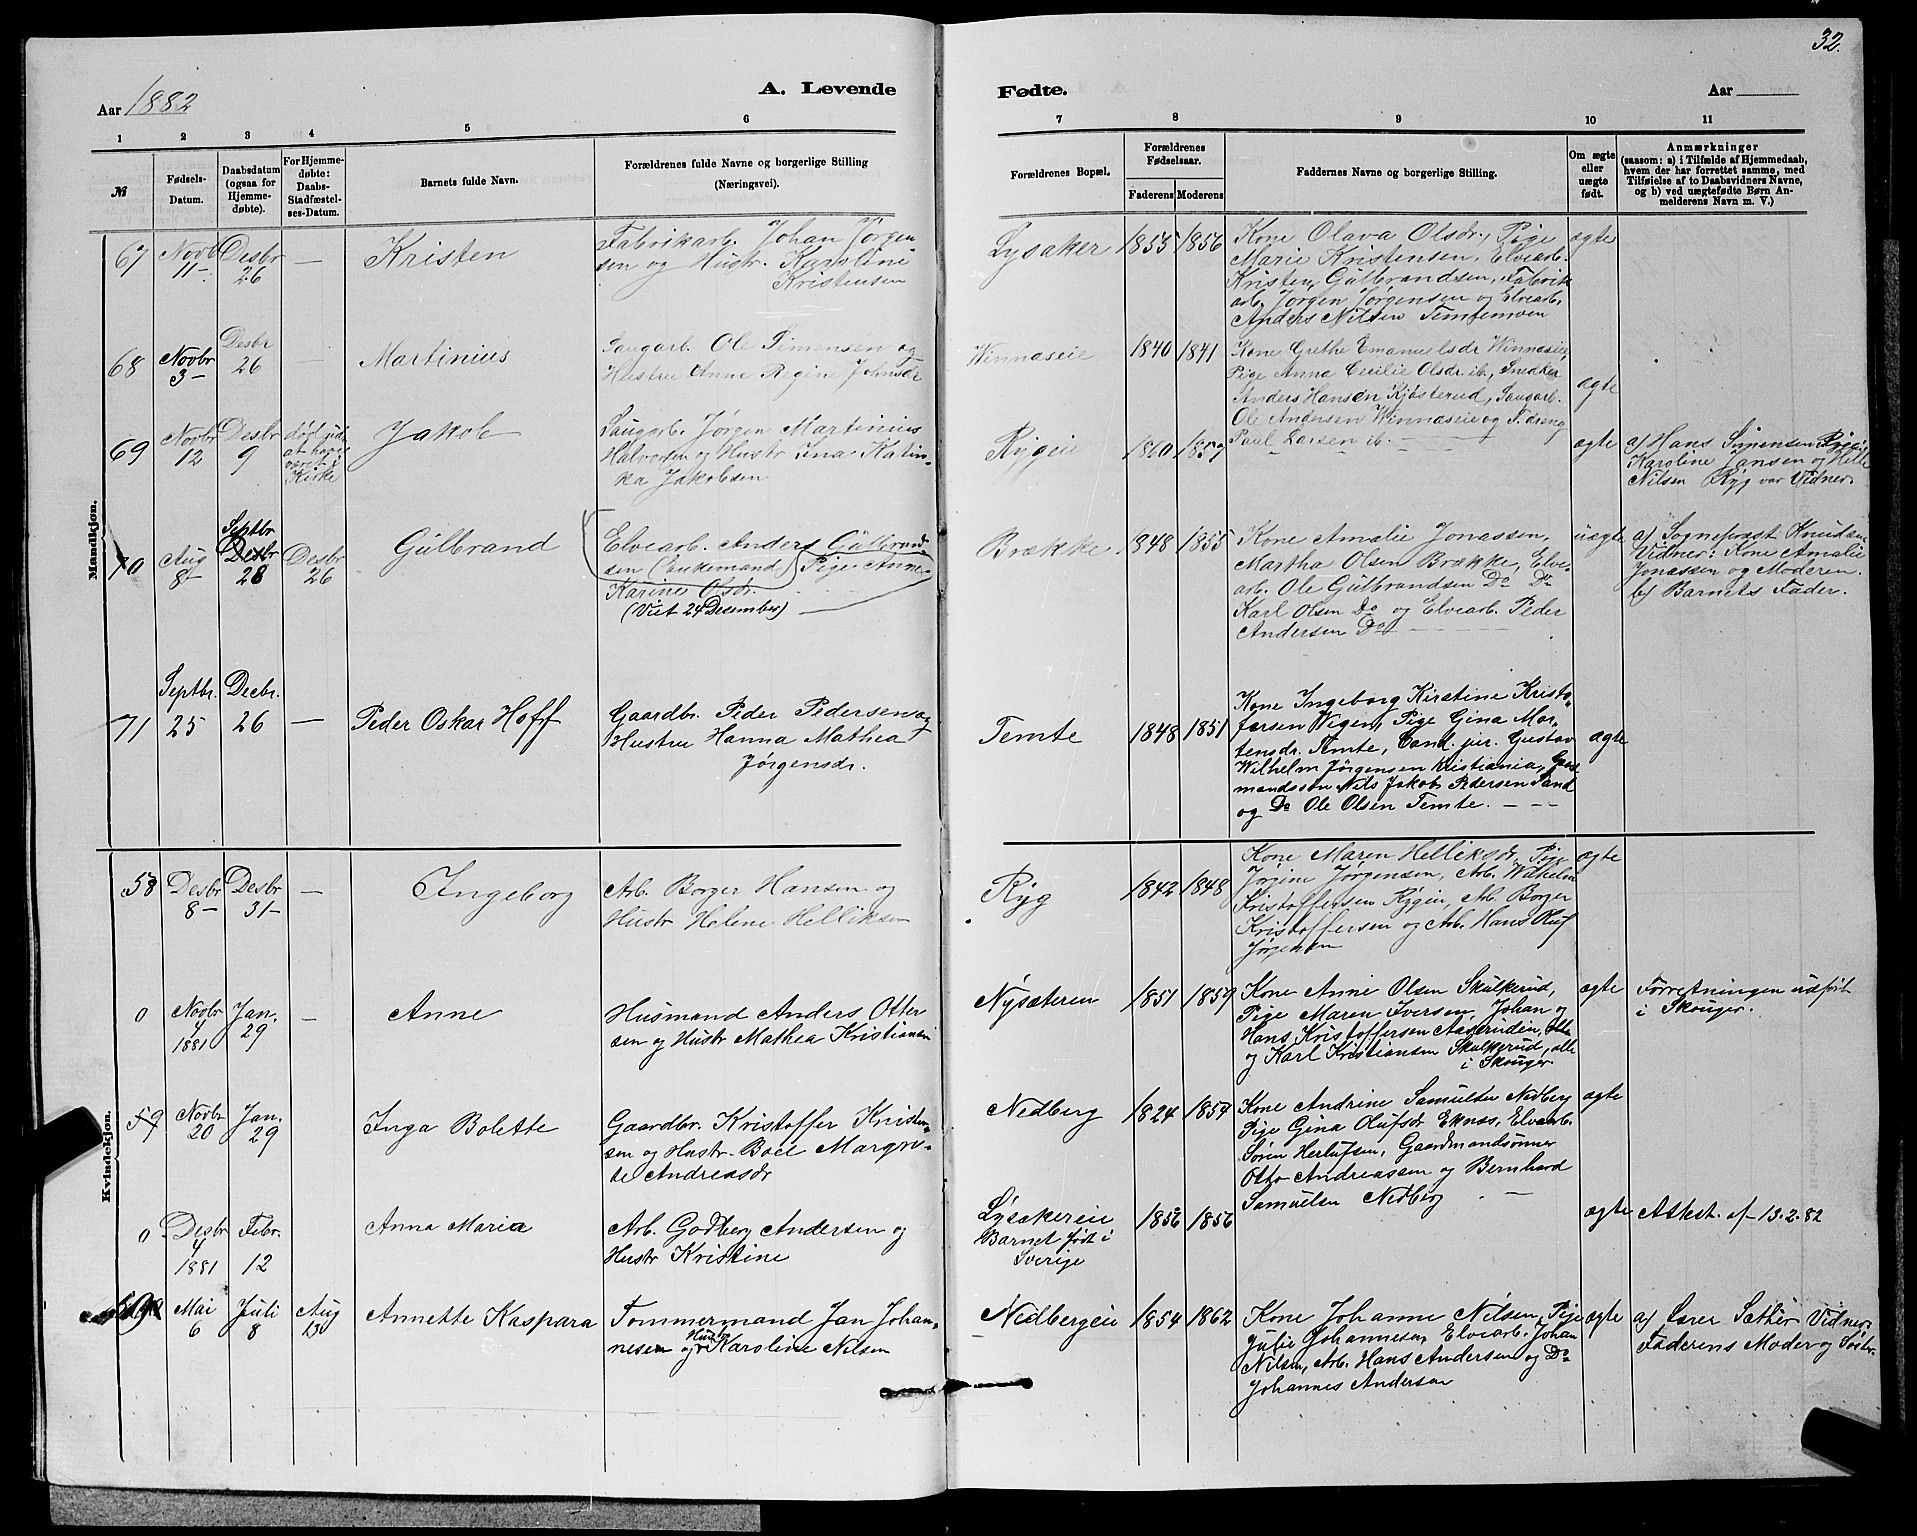 32.
Aar 1882
A. Levende
Fødte.
Aar
1 2 3 4 5 6
7 8 9 10 11
№
Fødsels-Datum.
Daabsdatum (ogsaa for Hjemme-døbte).
For Hjemme-døbte: Daabs-Stadfæstel-ses-Datum.
Barnets fulde Navn.
Forældrenes fulde Navne og borgerlige Stilling (Næringsvei).
Forældrenes Bopæl.
Forældrenes Fødselsaar.
Faderens Moderens
Faddernes Navne og borgerlige Stilling.
Om ægte eller uægte født.
Anmærkninger
(saasom: a) i Tilfælde af Hjemmedaab, hvem der har forrettet samme, med Tilføielse af to Daabsvidners Navne, og b) ved uægtefødte Børn Anmelderens Navn m. V.)
Mandkjøn.
67 Novb 11 – Desbr 26 —
Kristen
Fabrikarb. Johan Jørgen-
sen og Hustr. Karoline
Kristensen
Lysaker 1855 1856
Kone Olava Olsdr., Pige
Marie Kristensen, Elvearb.
Kristen Gulbrandsen, Fabrik
arb. Jørgen Jørgensen og Elvearb.
Anders Nilsen Temtemoen
ægte
68 Novbr 3 – Desbr 26 —
Martinius
Saugarb. Ole Simensen og
Hustru Anne Regine Johnsdr
Winnaseie 1840 1841
Kone Grethe Emanuelsdr Winnaseie,
Pige Anna Cecilie Olsdr. ib., Snedker
Anders Hansen Kjøsterud, Saugarb.
Ole Andersen Winnaseie og Dreng
Paul Larsen ib. — — —
ægte
69 Novbr 12 Desbr 9
at have
været i
Kirke
Jakob
Saugarb. Jørgen Martinius
Halvorsen og Hustr Ina Katin-
ka Jakobsen
Rygeie 1860 1857
ægte
a) Hans Simensen Rygeie,
Karoline Jansen og Helle
Nilsen Ryg var Vidner.
70 Aug 8 – Septbr Desbr 28 Desbr 26
Gulbrand
Elvearb. Anders Gulbrand-
sen (Enkemand) Pige Anne
Karine Olsdr.
(Viet 24 Desember)
Brække 1848 1855
Kone Amalie Jonassen,
Martha Olsen Brække, Elve-
arb. Ole Gulbrandsen Do Do
Karl Olsen Do og Elvearb. Peder
Andersen Do
uægte
a) Sognepræst Knudsen
Vidner: Kone Amalie
Jonassen og Moderen.
b) Barnets Fader.
71 Septbr. 25 Decbr. 26 —
Peder Oskar Hoff
Gaardbr. Peder Pedersen og
Hustru Hanna Mathea
Jørgensdr.
Temte 1848 1851
Kone Ingeborg Kirstine Kristo-
fersen Wigen, Pige Gina Mor-
tensdr. Temte, Cand. jur. Gustav
Wilhelm Jørgensen Kristiania, Gaard-
mandssøn Nils Jakob Pedersen Sand
og Do Ole Olsen Temte. — — —
ægte
Kvindekjøn.
58 Desbr 8 – Desbr 31 – —
Ingeborg
Arb. Borger Hansen og
Hustr Helene Helliksen
Ryg 1842 1848
Kone Maren Helliksdr, Pige
Jørgine Jørgensen, Arb. Wilhelm
Kristoffersen Rygeie, Arb. Borger
Kristoffersen og Arb. Hans Oluf
Jørgensen
ægte
0 Novbr 4 1881 Jan. 29 —
Anne
Husmand Anders Otter
sen og Hustr Mathea Kristiansen
Nysæteren 1851 1859
Kone Anne Olsen Skulkerud,
Pige Maren Iversen, Johan og
Hans Kristoffersen Aaserudeie,
og Karl Kristiansen Skulkerud, alle
i Skouger.
ægte
Forretningen udført
i Skouger.
59 Novbr 20 Jan. 29
Inga Bolette
Gaardbr. Kristoffer Knisten-
sen og Hustr. Boel Margre-
te Andreasdr
Nedberg 1824 1854
Kone Andrine Samuelsen Nedberg
Pige Gina Olufsdr Eknæs, Elvearb.
Søren Herlufsen, Gaardmandsønner
Otto Andreassen og Bernhard
Samuelsen Nedberg —
ægte
0 Desbr 4 1881 Febr. 12
Anna Maria
Arb. Godberg Andersen og
Hustr Kristine
Lysakereie
Barnet født i
Sverige
1856 1856
ægte
Attest. af 13-2-82
Mai 6 Juli 8 Aug 13
Annette Kaspara
Tømmermand Jan Johan-
nesen og Hustru Karoline Nilsen
Nedbergeie 1854 1862
Kone Johanne Nilsen, Pige
Julie Johannesen, Elvearb. Johan
Nilsen, Arb. Hans Andersen og Do
Johannes Andersen
ægte
a) Lærer Sæther. Vidner
Faderens Moder og Søster.